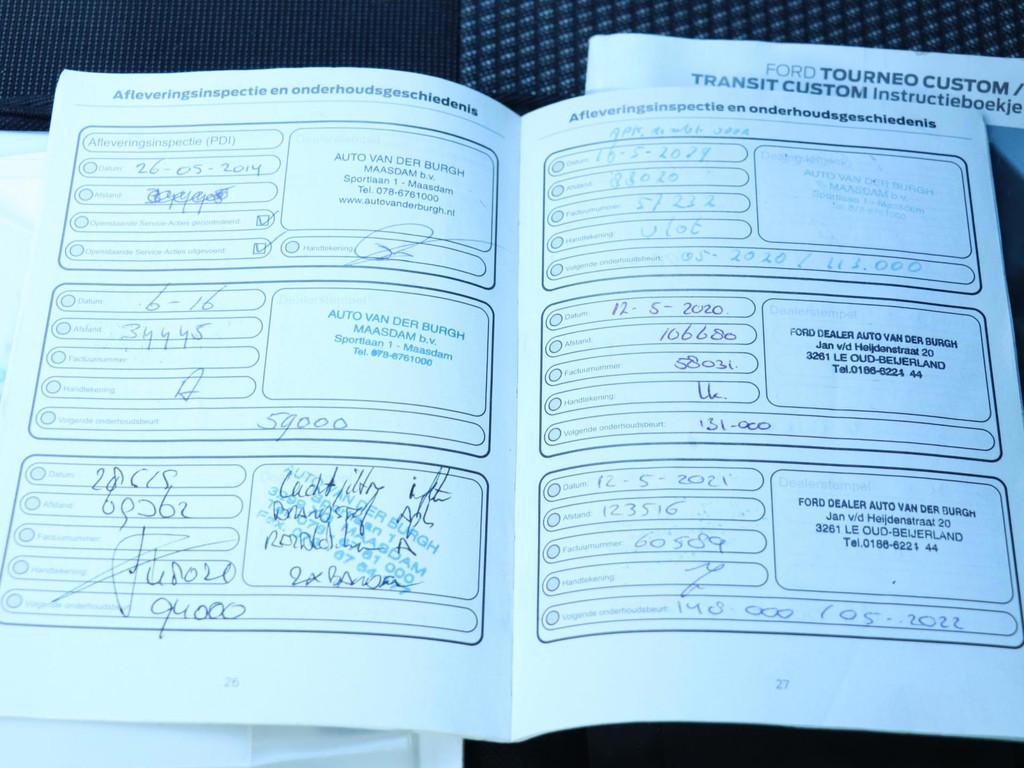 FORD TOURNEO CUSTOM /
TRANSIT CUSTOM Instructieboekje
Afleveringsinspectie en onderhoudsgeschiedenis
Afleveringsinspectie (PDI)
Datum: 26-05-2014
Afstand:
Openstaande Service-Acties gecontroleerd:
Openstaande Service-Acties uitgevoerd:
Dealerstempel
AUTO VAN DER BURGH
MAASDAM b.v.
Sportlaan 1 - Maasdam
Tel. 078-6761000
www.autovanderburgh.nl
Handtekening:
Datum: 6-16
Afstand: 34445
Factuurnummer:
Handtekening:
Volgende onderhoudsbeurt: 59000
Dealerstempel
AUTO VAN DER BURGH
MAASDAM b.v.
Sportlaan 1 - Maasdam
Tel. 078-6761000
Datum:
Afstand:
Factuurnummer:
Handtekening:
Volgende onderhoudsbeurt: 94000
26
Afleveringsinspectie en onderhoudsgeschiedenis
Datum:
Afstand: 88020
Factuurnummer: 51232
Handtekening:
Volgende onderhoudsbeurt: 05-2020 / 113.000
Dealerstempel
AUTO VAN DER BURGH
MAASDAM b.v.
Sportlaan 1 - Maasdam
Tel. 078-6761000
Datum: 12-5-2020.
Afstand: 106680
Factuurnummer: 58031.
Handtekening:
Volgende onderhoudsbeurt: 131-000
Dealerstempel
FORD DEALER AUTO VAN DER BURGH
Jan v/d Heijdenstraat 20
3261 LE OUD-BEIJERLAND
Tel.0186-6221 44
Datum: 12-5-2021
Afstand: 123516
Factuurnummer: 60589
Handtekening:
Volgende onderhoudsbeurt: 148-000 / 05-2022
Dealerstempel
FORD DEALER AUTO VAN DER BURGH
Jan v/d Heijdenstraat 20
3261 LE OUD-BEIJERLAND
Tel.0186-6221 44
27